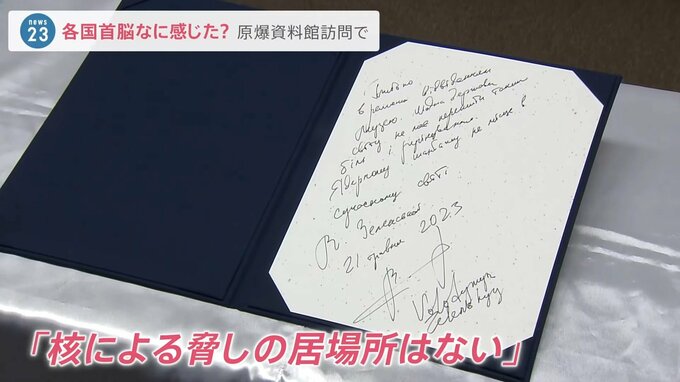 news
23
各国首脳なに感じた? 原爆資料館訪問で
Глибоко
вражений відвіданням
Музею. Жодна держава
світу не має пережити такий
біль і руйнування.
Ядерному шантажу не місце в
сучасному світі.
В. Зеленський
21 травня 2023
Volodymyr
Zelenskyy
「核による脅しの居場所はない」